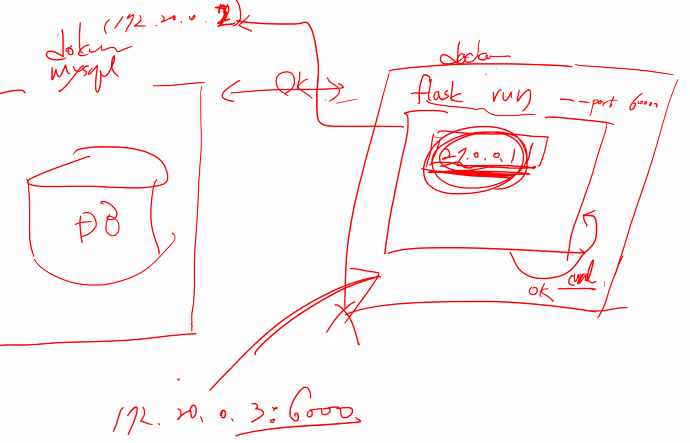 (192.20.0.2)
docker
mysql
OK
docker
flask run --port 6000
127.0.0.1
DB
OK curl
192.20.0.3:6000